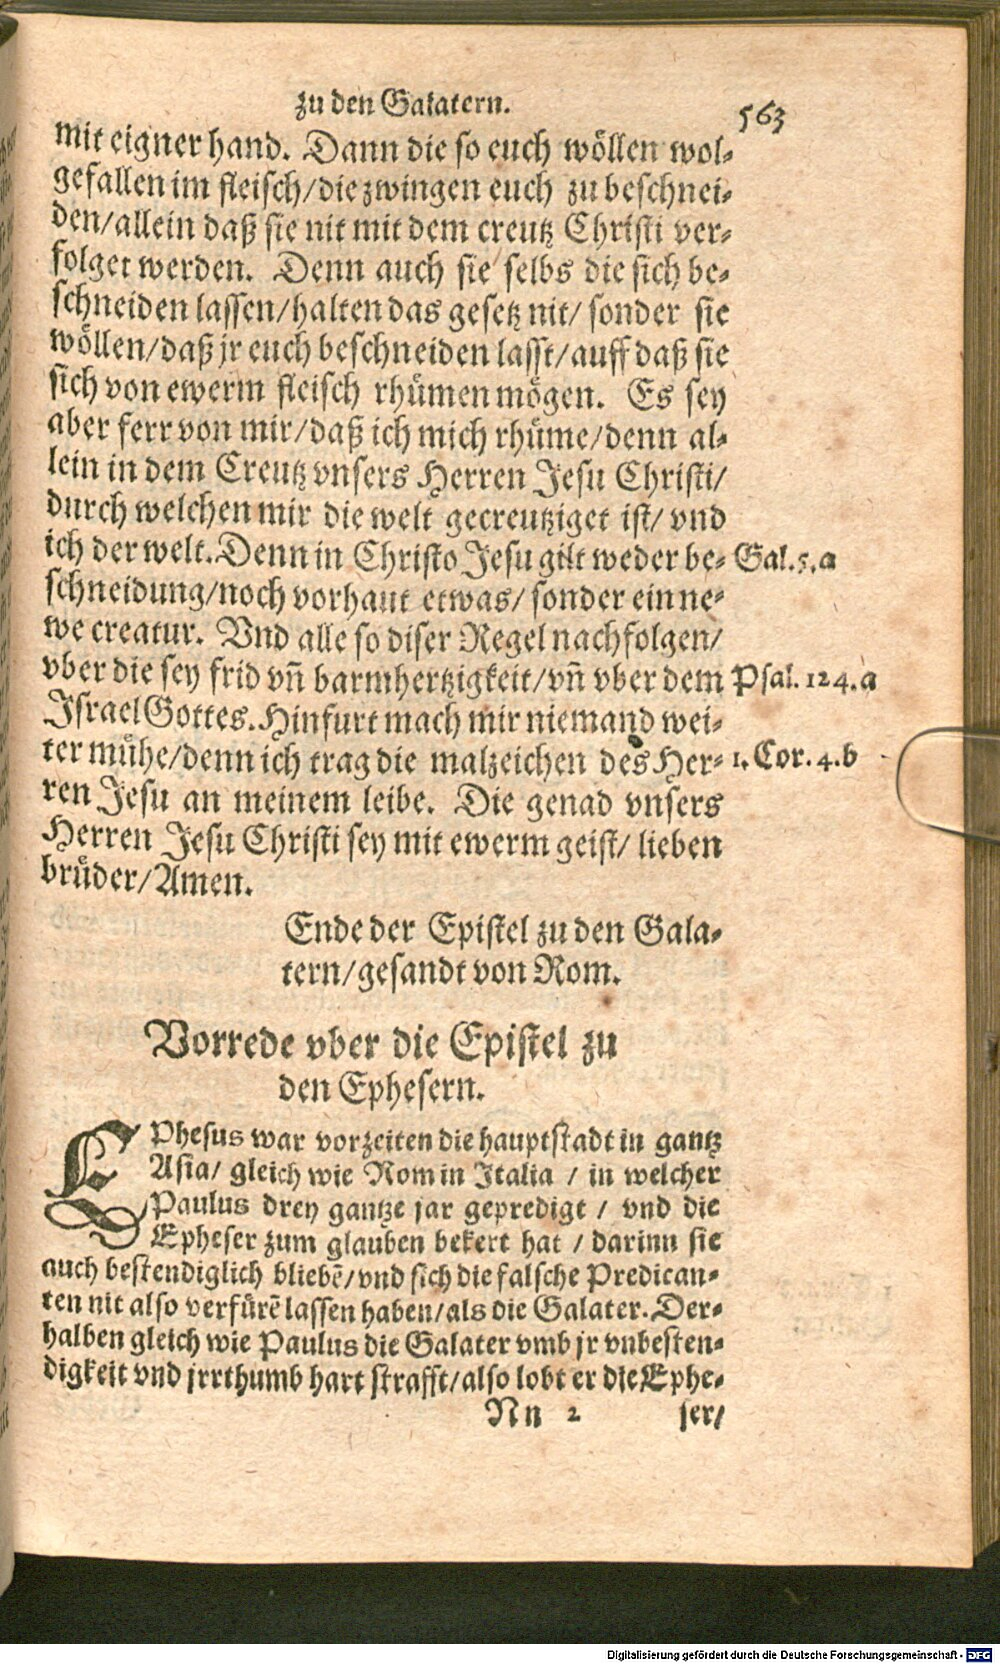 zu den Galatern. 563
mit eigner hand. Dann die so euch wöllen wol-
gefallen im fleisch/die zwingen euch zu beschnei-
den/allein daß sie nit mit dem creutz Christi ver-
folget werden. Denn auch sie selbs die sich be-
schneiden lassen/halten das gesetz nit/ sonder sie
wöllen/daß jr euch beschneiden lasst/auff daß sie
sich von ewerm fleisch rhümen mögen. Es sey
aber ferr von mir/daß ich mich rhüme/denn al-
lein in dem Creutz vnsers Herren Jesu Christi/
durch welchen mir die welt gecreutziget ist/ vnd
ich der welt. Denn in Christo Jesu gilt weder be- Gal. 5. a
schneidung/noch vorhaut etwas/ sonder ein ne-
we creatur. Vnd alle so diser Regel nachfolgen/
vber die sey frid vñ barmhertzigkeit/vñ vber dem Psal. 124. a
Israel Gottes. Hinfurt mach mir niemand wei-
ter mühe/denn ich trag die malzeichen des Her- 1. Cor. 4. b
ren Jesu an meinem leibe. Die genad vnsers
Herren Jesu Christi sey mit ewerm geist/ lieben
brüder/Amen.
Ende der Epistel zu den Gala-
tern/gesandt von Rom.
Vorrede vber die Epistel zu
den Ephesern.
EPhesus war vorzeiten die hauptstadt in gantz
Asia/ gleich wie Rom in Italia / in welcher
Paulus drey gantze jar gepredigt / vnd die
Epheser zum glauben bekert hat / darinn sie
auch bestendiglich bliebē/vnd sich die falsche Predican-
ten nit also verfürē lassen haben/als die Galater. Der-
halben gleich wie Paulus die Galater vmb jr vnbesten-
digkeit vnd jrrthumb hart strafft/also lobt er die Ephe-
Nn 2 ser/
Digitalisierung gefördert durch die Deutsche Forschungsgemeinschaft - DFG